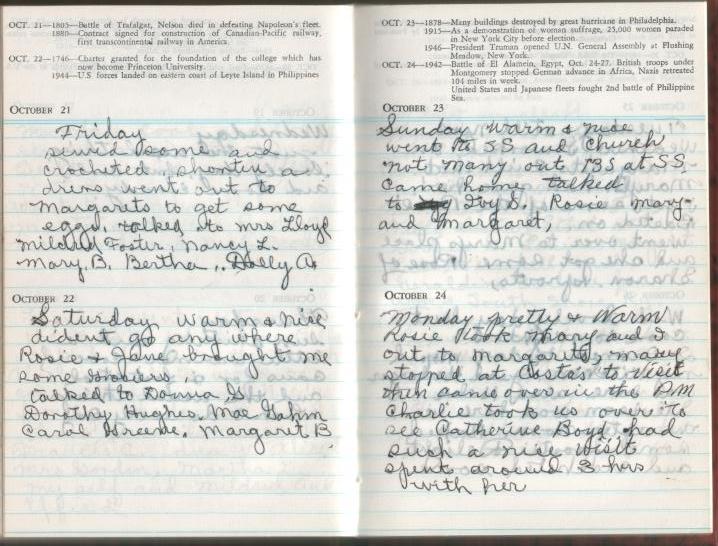 OCT. 21—1805—Battle of Trafalgar, Nelson died in defeating Napoleon's fleet.
1880—Contract signed for construction of Canadian-Pacific railway,
first transcontinental railway in America.
OCT. 22—1746—Charter granted for the foundation of the college which has
now become Princeton University.
1944—U.S. forces landed on eastern coast of Leyte Island in Philippines
OCTOBER 21
Friday
sewid some and
crocheted, shontin a
dress went out to
Margarets to get some
eggs, talked to mrs Lloyd
mildred Foster, Nancy L.
Mary, B. Bertha, Dolly A.
OCTOBER 22
Saturday warm & nice
dident go any where
Rosie & Jane brought me
some
talked to Donna G
Dorothy Hughes. Mae Gahm
Carol Greene, Margaret B
OCT. 23—1878—Many buildings destroyed by great hurricane in Philadelphia.
1915—As a demonstration of woman suffrage, 25,000 women paraded
in New York City before election.
1946—President Truman opened U.N. General Assembly at Flushing
Meadow, New York.
OCT. 24—1942—Battle of El Alamein, Egypt, Oct. 24-27. British troops under
Montgomery stopped German advance in Africa, Nazis retreated
104 miles in week.
United States and Japanese fleets fought 2nd battle of Philippine
Sea.
OCTOBER 23
Sunday warm & nice
went to SS and Church
not many out 135 at SS.
Came home talked
to Ivy S. Rosie mary
and Margaret,
OCTOBER 24
Monday pretty & Warm
Rosie took mary and I
out to Margarets, mary
stopped at Costa's to visit
then came over in the PM
Charlie took us over to
see Catherine Boyd had
such a nice visit
spent around 3 hrs
with her